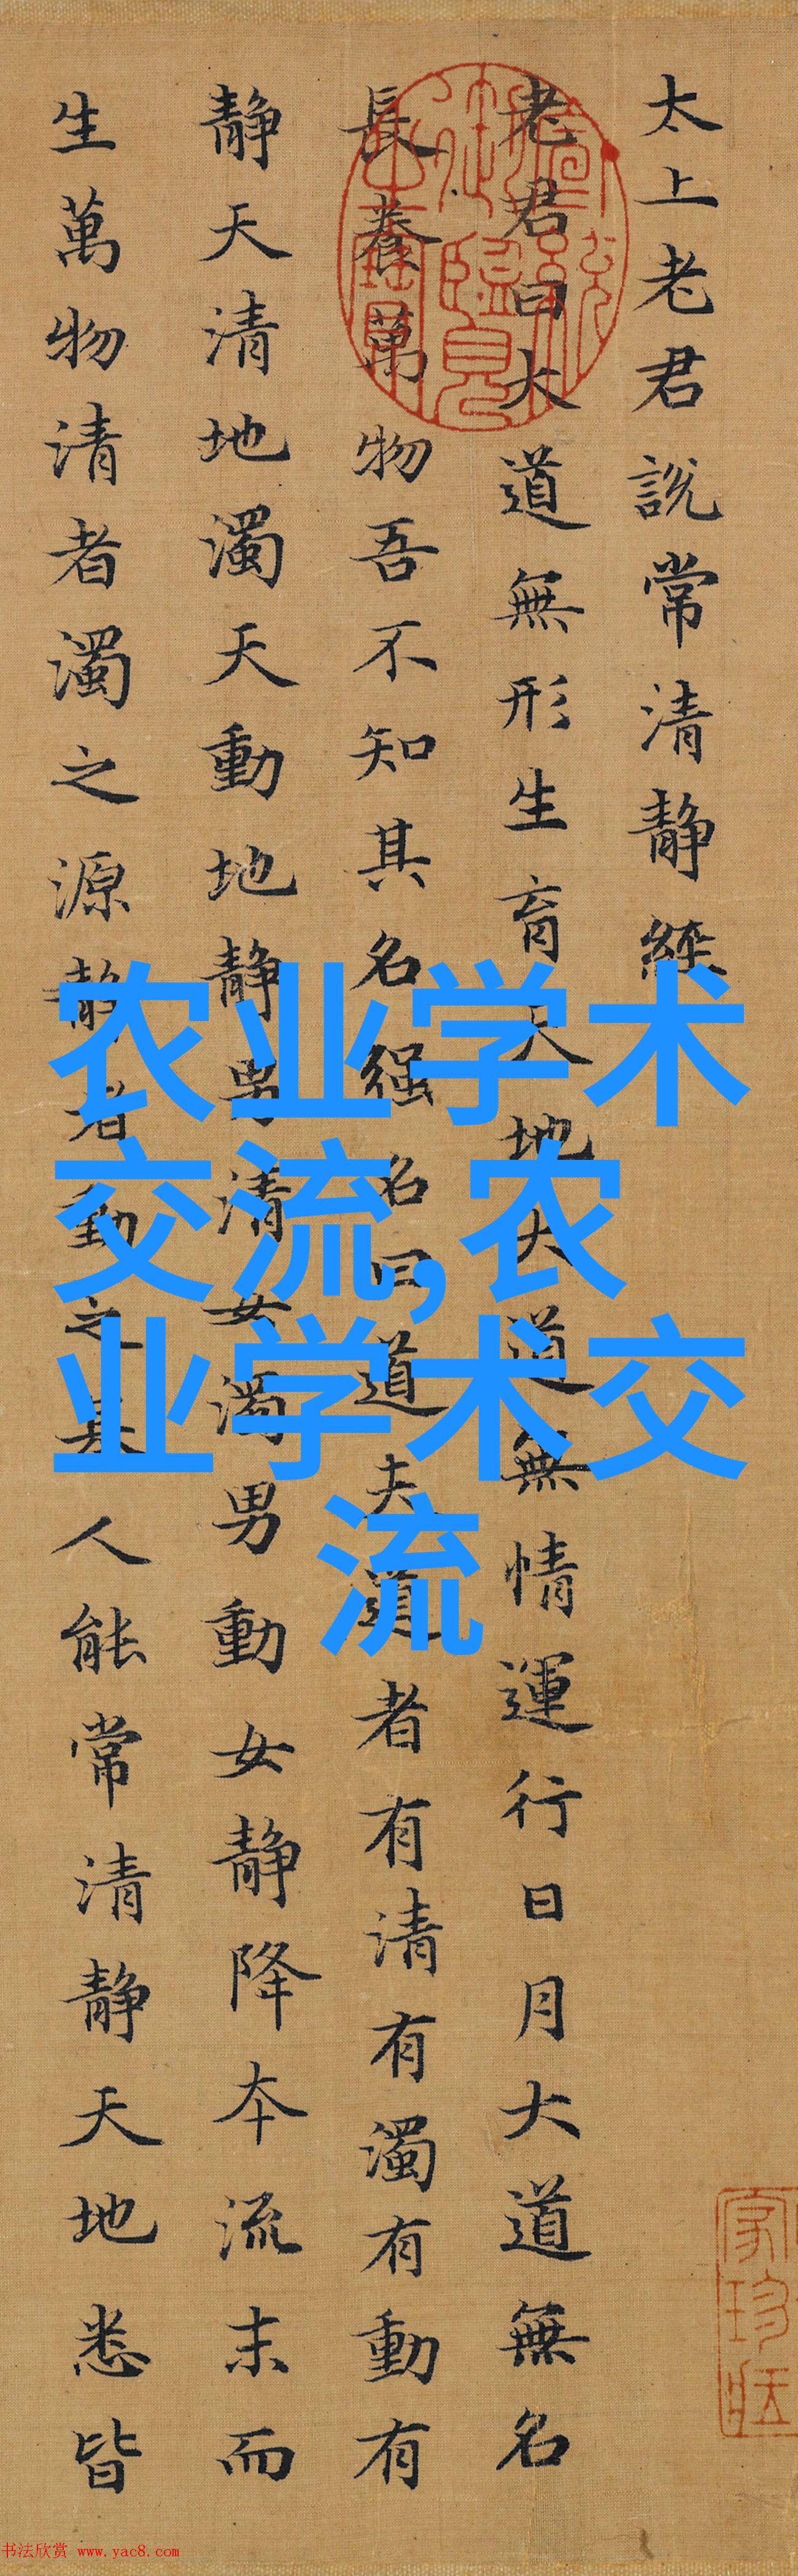 太上老君說常清静經
老君曰大道無形生育天地大道無情運行日月大道無名
長養萬物吾不知其名强名曰道夫道者有清有濁有動有
静天清地濁天動地静男清女濁男動女静降本流末而
生萬物清者濁之源静者動之基人能常清静天地悉皆
农业学术
交流,农
业学术交
流
书法欣赏 www.yac8.com